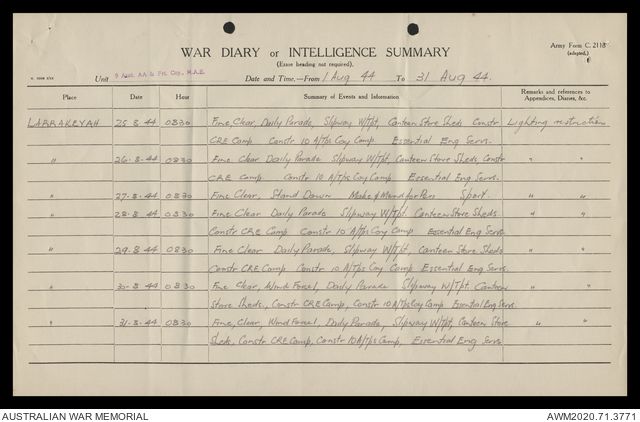 Army Form C. 2118
(adapted.)
WAR DIARY or INTELLIGENCE SUMMARY
(Erase heading not required).
Unit
Date and Time.—From 1 Aug 44 To 31 Aug 44.
Place Date Hour Summary of Events and Information Remarks and references to Appendices, Diaries, &c.
LARRAKEYAH 25-8-44 0830 Fine, Clear, Daily Parade, Slipway W/Tpt, Canteen Store Sheds Constr Lighting restriction
CRE Camp Constr 10 A/Tps Coy Camp Essential Eng Servs.
" 26-8-44 0830 Fine Clear Daily Parade Slipway W/Tpt, Canteen Store Sheds, Constr " "
CRE Camp Constr 10 A/Tps Coy Camp Essential Eng Servs.
" 27-8-44 0830 Fine Clear, Stand Down Make & Mend for Pers Sport. " "
" 28-8-44 0830 Fine Clear Daily Parade Slipway W/Tpt. Canteen Store Sheds. " "
Constr CRE Camp Constr 10 A/Tps Coy Camp Essential Eng Servs.
" 29-8-44 0830 Fine Clear Daily Parade, Slipway W/Tpt, Canteen Store Sheds " "
Constr CRE Camp Constr 10 A/Tps Coy Camp Essential Eng Servs.
" 30-8-44 0830 Fine Clear, Wind Forcel, Daily Parade Slipway W/Tpt Canteen " "
Store Sheds, Constr CRE Camp, Constr 10 A/Tps Coy Camp Essential Eng Servs.
" 31-8-44 0830 Fine, Clear, Wind Forcel, Daily Parade, Slipway W/Tpt Canteen Store " "
Sheds, Constr CRE Camp, Constr 10 A/Tps Camp, Essential Eng Servs
AUSTRALIAN WAR MEMORIAL AWM2020.71.3771